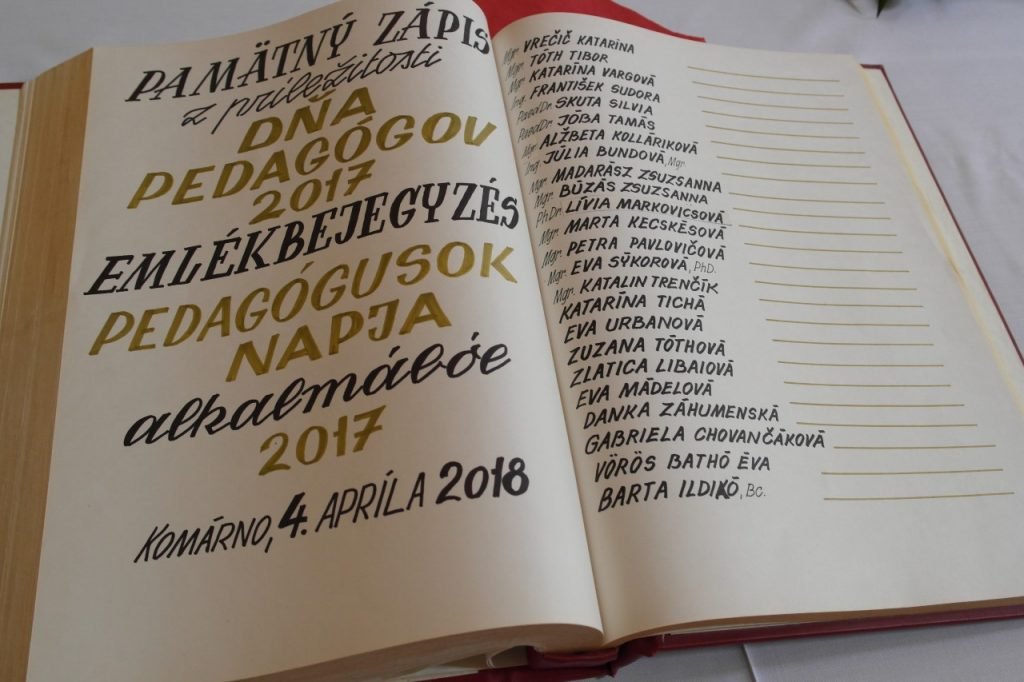 PAMÄTNÝ ZÁPIS
z príležitosti
DŇA
PEDAGÓGOV
2017
EMLÉKBEJEGYZÉS
PEDAGÓGUSOK
NAPJA
alkalmából
2017
KOMÁRNO, 4. APRÍLA 2018
Mgr. VREČIČ KATARÍNA
Mgr. TÓTH TIBOR
Mgr. KATARÍNA VARGOVÁ
Ing. FRANTIŠEK SUDORA
PaedDr. SKUTA SILVIA
PaedDr. JÓBA TAMÁS
Mgr. ALŽBETA KOLLÁRIKOVÁ
Ing. JÚLIA BUNDOVÁ, Mgr.
Mgr. MADARÁSZ ZSUZSANNA
Mgr. BÚZÁS ZSUZSANNA
PhDr. LÍVIA MARKOVICSOVÁ
Mgr. MARTA KECSKÉSOVÁ
Mgr. PETRA PAVLOVIČOVÁ
Mgr. EVA SÝKOROVÁ, PhD.
Mgr. KATALIN TRENČÍK
KATARÍNA TICHÁ
EVA URBANOVÁ
ZUZANA TÓTHOVÁ
ZLATICA LIBAIOVÁ
EVA MÁDELOVÁ
DANKA ZÁHUMENSKÁ
GABRIELA CHOVANČÁKOVÁ
VÖRÖS BATHÓ ÉVA
BARTA ILDIKÓ, Bc.